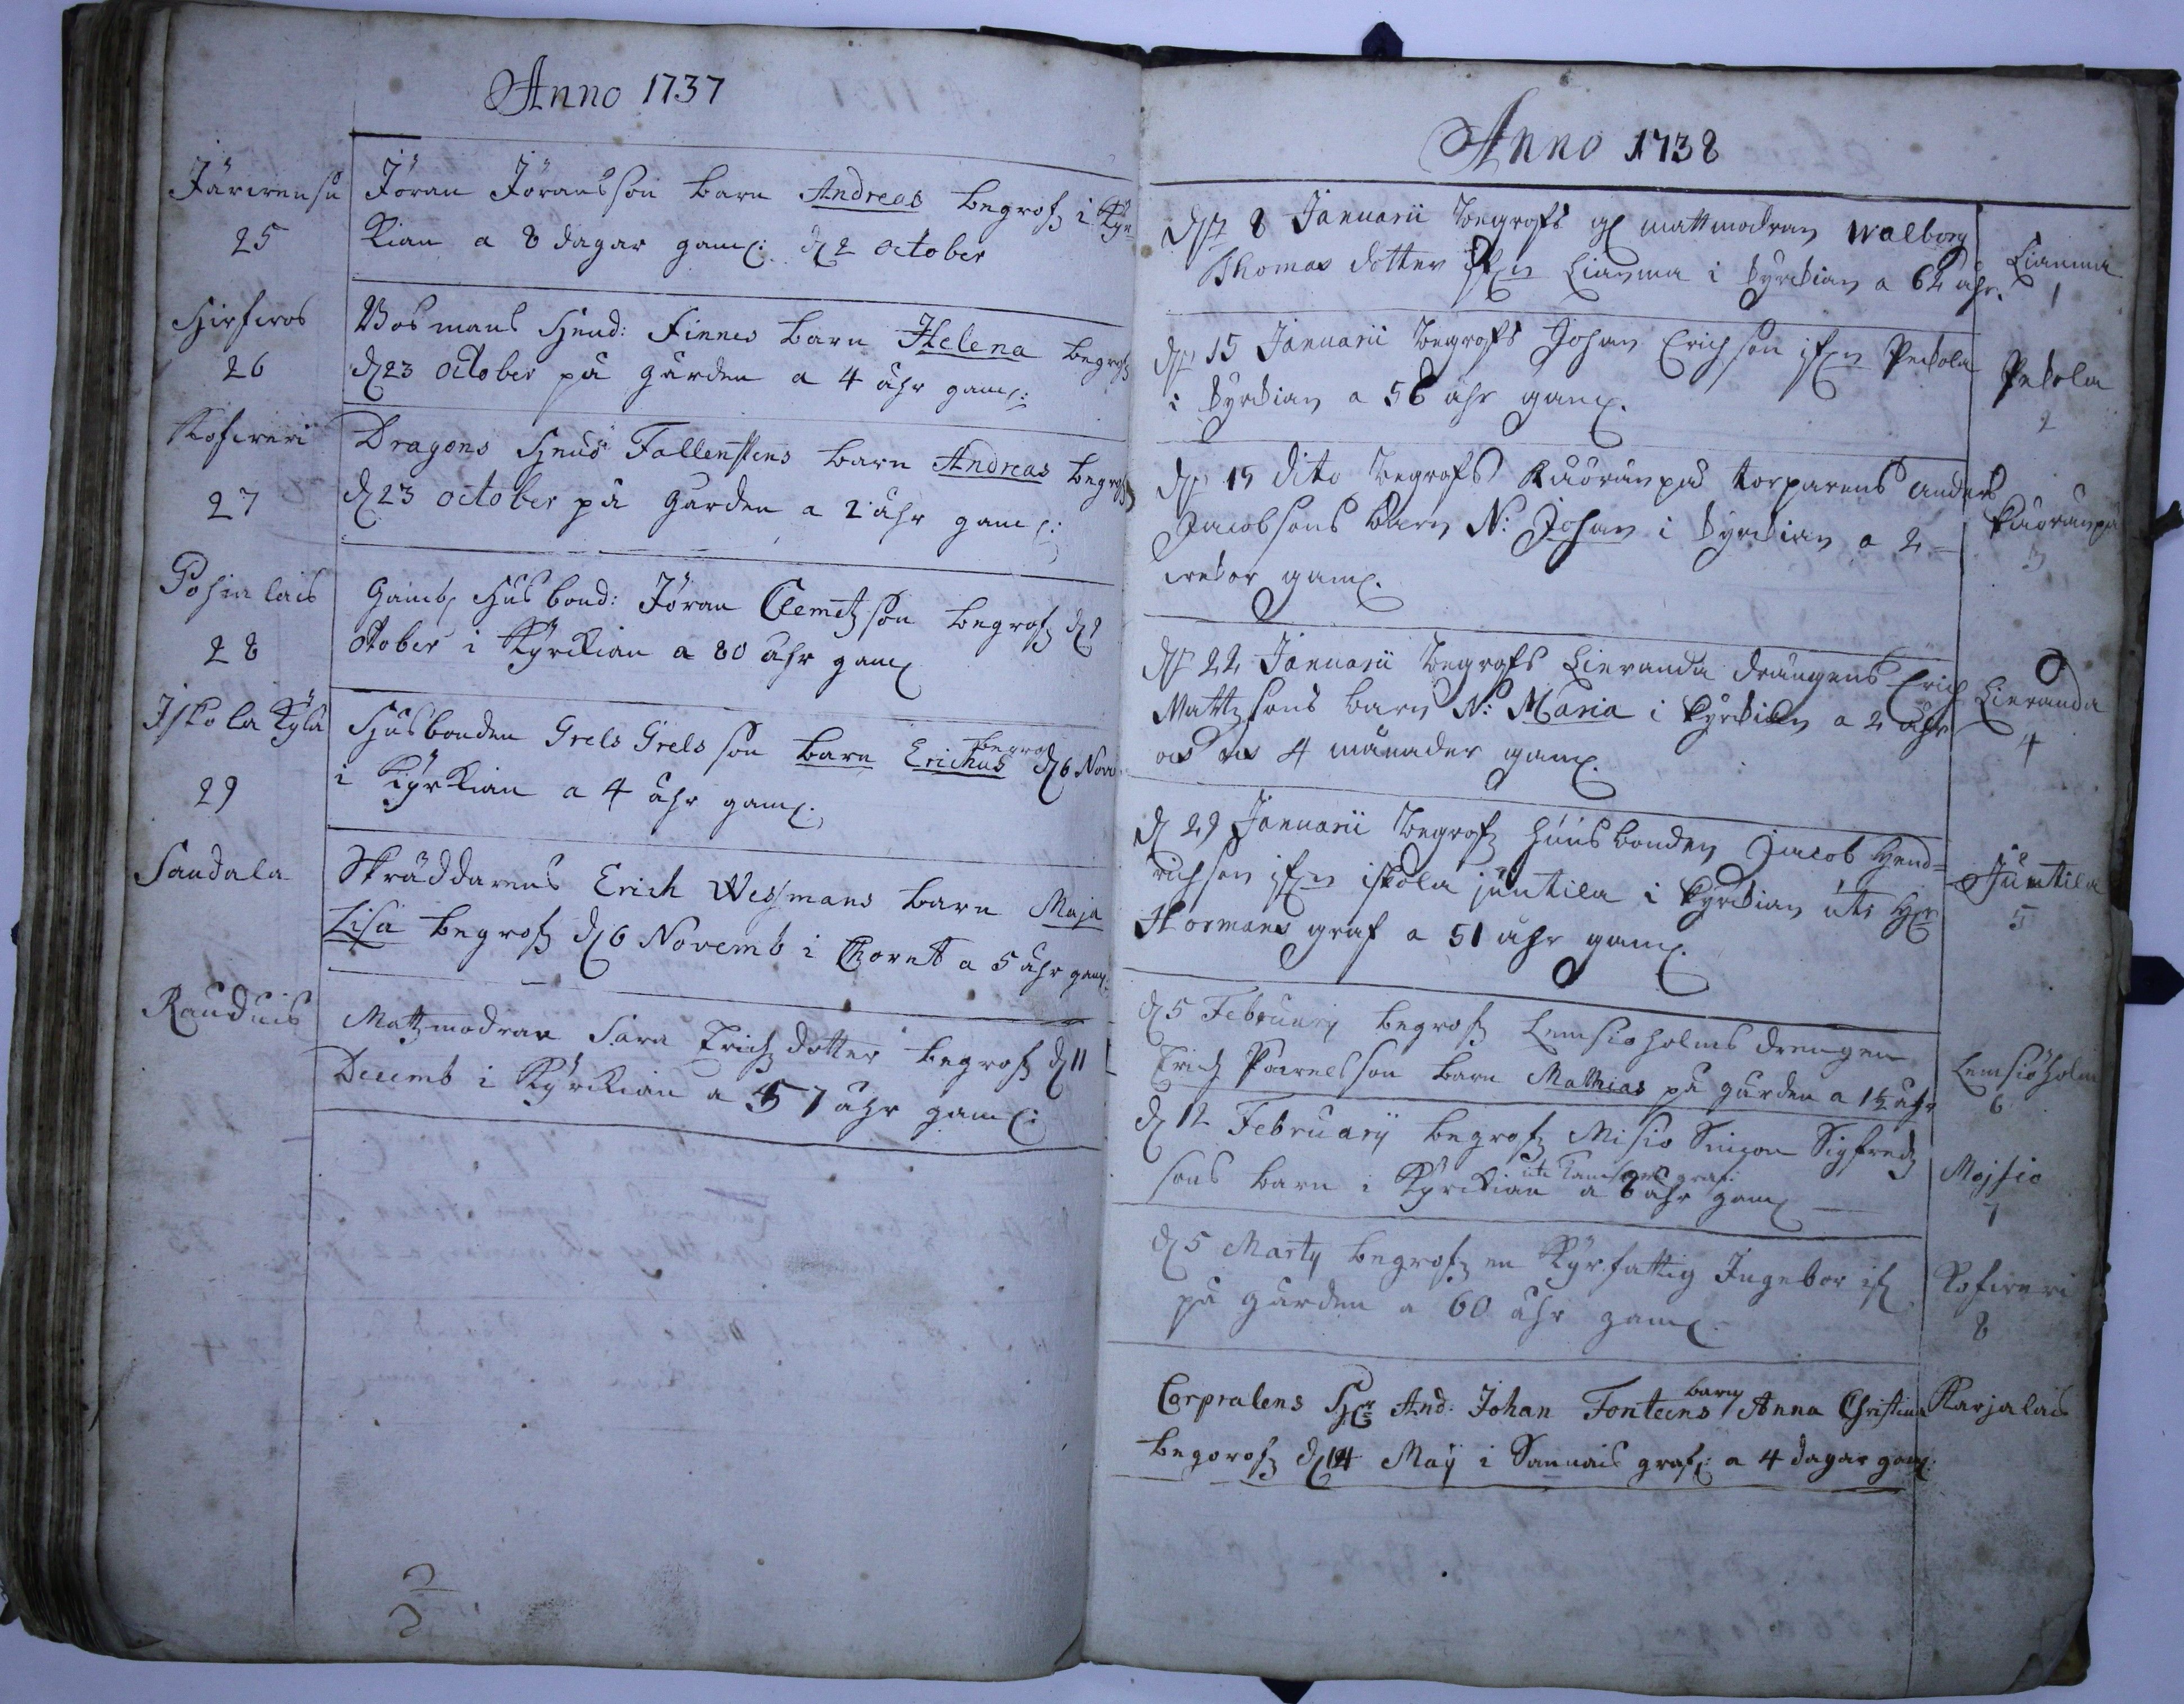 Anno 1737
Järvensu
25
Jöran Jöransson barn Andreas begrofz i Kyr
Kian a 8 dagar gaml: d 2 October
Hirfwos
26
Bosmans Hend: Finnes barn Helena begrofz
d 23 October på gården a 4 åhr gaml:
Kofweri
27
Dragons Hend Fallenstens barn Andreas begrofz
d 23 October på gården a 2 åhr gaml:
Pohialais
28
Gaml Husbond: Jöran Clemetzson begrofz d
October i Kyrckian a 80 åhr gaml
Iskola Kylä
29
Husbonden Grels Grelsson barn Erichus begrofz d 6 Nov
i Kyrkian a 4 åhr gaml:
Sandala
Skräddarens Erich Wessmans barn Maja
Lisa begrofz d 6 Novemb i Choret a 5 åhr gaml
Rauduis
Matzmodran Sara Erichzdotter begrofz d 11
Decemb i Kyrckian a 57 åhr gaml:
Anno 1738
den 8 Januarii begrofs gl mattmodran Walborg
Thomas dotter ifrån Lianma i kyrckian a 62 åhr.
Lianma
1
den 15 Januarii begrofs Johan Erichson ifrån Pekola
i kyrckian a 56 åhr gaml.
Pekola
2
den 15 dito begrofs Kuorunpää torparens anders
Jacobsons barn N: Johan i kyrckian a 2
wekor gaml.
Kuorunpä
3
den 22 Januarii begrofs Lieranda drängens Erich
Mattzsons barn N: Maria i kyrckian a 2 åhr
och 4 månader gaml.
Lieranda
4
d 29 Januarii begrofz huusbonden Jacob Hend=
richson ifrån iskola juntila i kyrckian uti Hr
Hormans graf a 51 åhr gaml.
Juntila
5
d 5 February begrofz Lemsioholms drengen
Erich Påvelsson barn Mathias på gården a 1½ åhr
Lemsiöholm
6
d 12 February begrofz Misio Simon Sigfredz
sons barn i Kyrckian uti graf. a 8 åhr gaml
Mojsio
7
d 5 Marty begrofz en Kyrfattig Ingebor if
på gården a 60 åhr gaml.
Kofweri
8
Corpralens Hr And: Johan Fonteens barn Anna Christina
begorofz d 14 Maÿ i Sannais graf: a 4 dagar gaml:
Karjalais